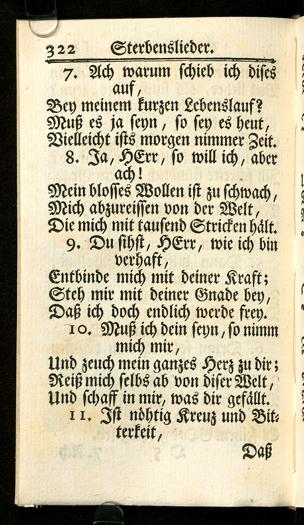 322 Sterbenslieder.
7. Ach warum schieb ich dises
auf,
Bey meinem kurzen Lebenslauf?
Muß es ja seyn, so sey es heut,
Vielleicht ists morgen nimmer Zeit.
8. Ja, HErr, so will ich, aber
ach!
Mein blosses Wollen ist zu schwach,
Mich abzureissen von der Welt,
Die mich mit tausend Stricken hält.
9. Du sihst, HErr, wie ich bin
verhaft,
Entbinde mich mit deiner Kraft;
Steh mir mit deiner Gnade bey,
Daß ich doch endlich werde frey.
10. Muß ich dein seyn, so nimm
mich mir,
Und zeuch mein ganzes Herz zu dir;
Reiß mich selbs ab von diser Welt,
Und schaff in mir, was dir gefällt.
11. Ist nöhtig Kreuz und Bit-
terkeit,
Daß